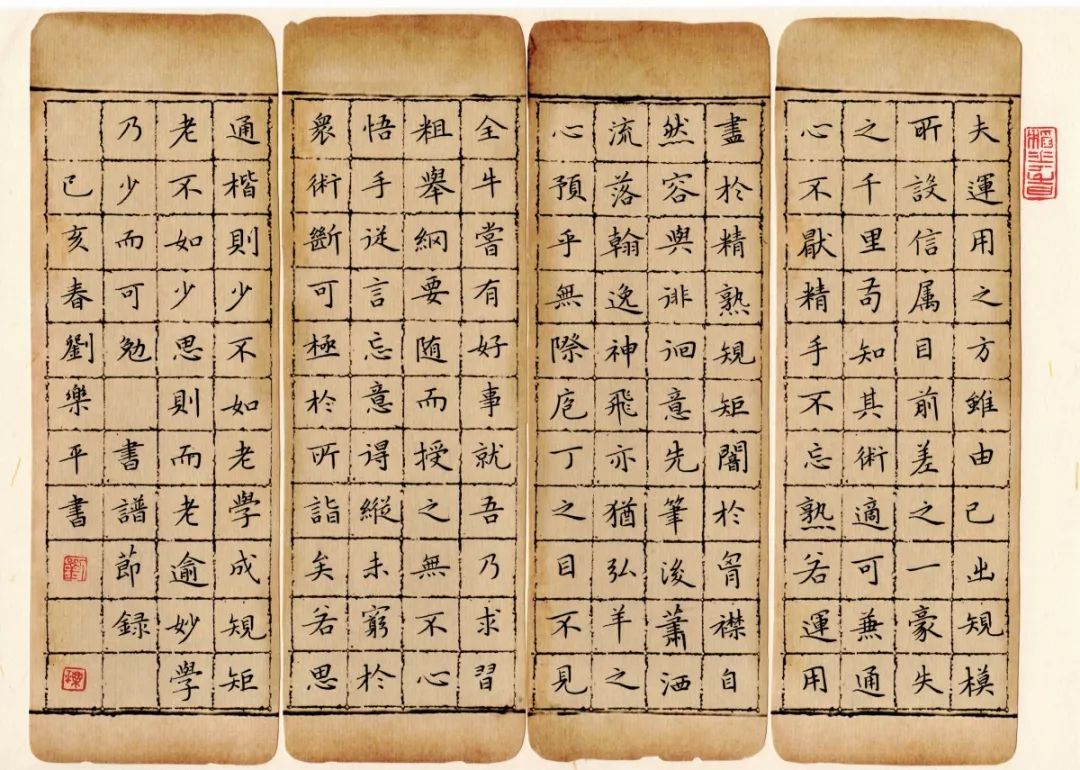 夫運用之方雖由己出規模
所設信属目前差之一豪失
之千里苟知其術適可兼通
心不厭精手不忘熟若運用
盡於精熟規矩闇於胷襟自
然容與徘徊意先筆後蕭洒
流落翰逸神飛亦猶弘羊之
心預乎無際庖丁之目不見
全牛嘗有好事就吾乃求習
粗舉綱要随而授之無不心
悟手従言忘意得縱未窮於
衆術斷可極於所詣矣若思
通楷則少不如老學成規矩
老不如少思則而老逾妙學
乃少而可勉 書譜節録
己亥春劉樂平書